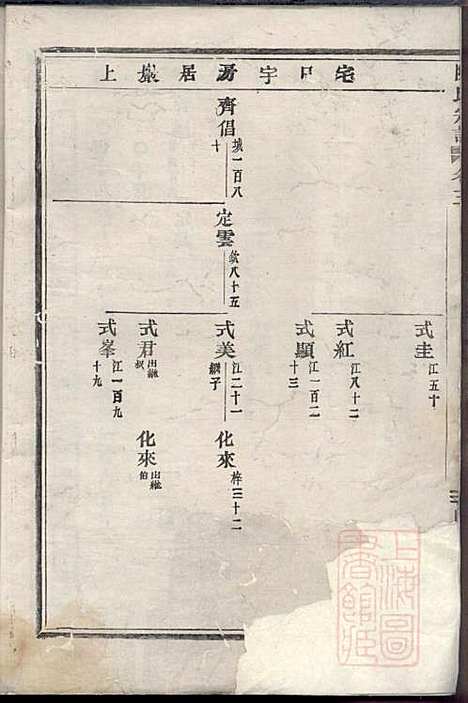 宅日宇房居巖上
齊倡 城一百八十
定雲 欽八十五
式圭 江五十
式紅 江八十二
式顯 江一百二十三
式美 江二十一 繼子
化來 梓三十二
式君 出繼叔
化來 出繼伯
式峯 江一百九十九
上海圖書館藏